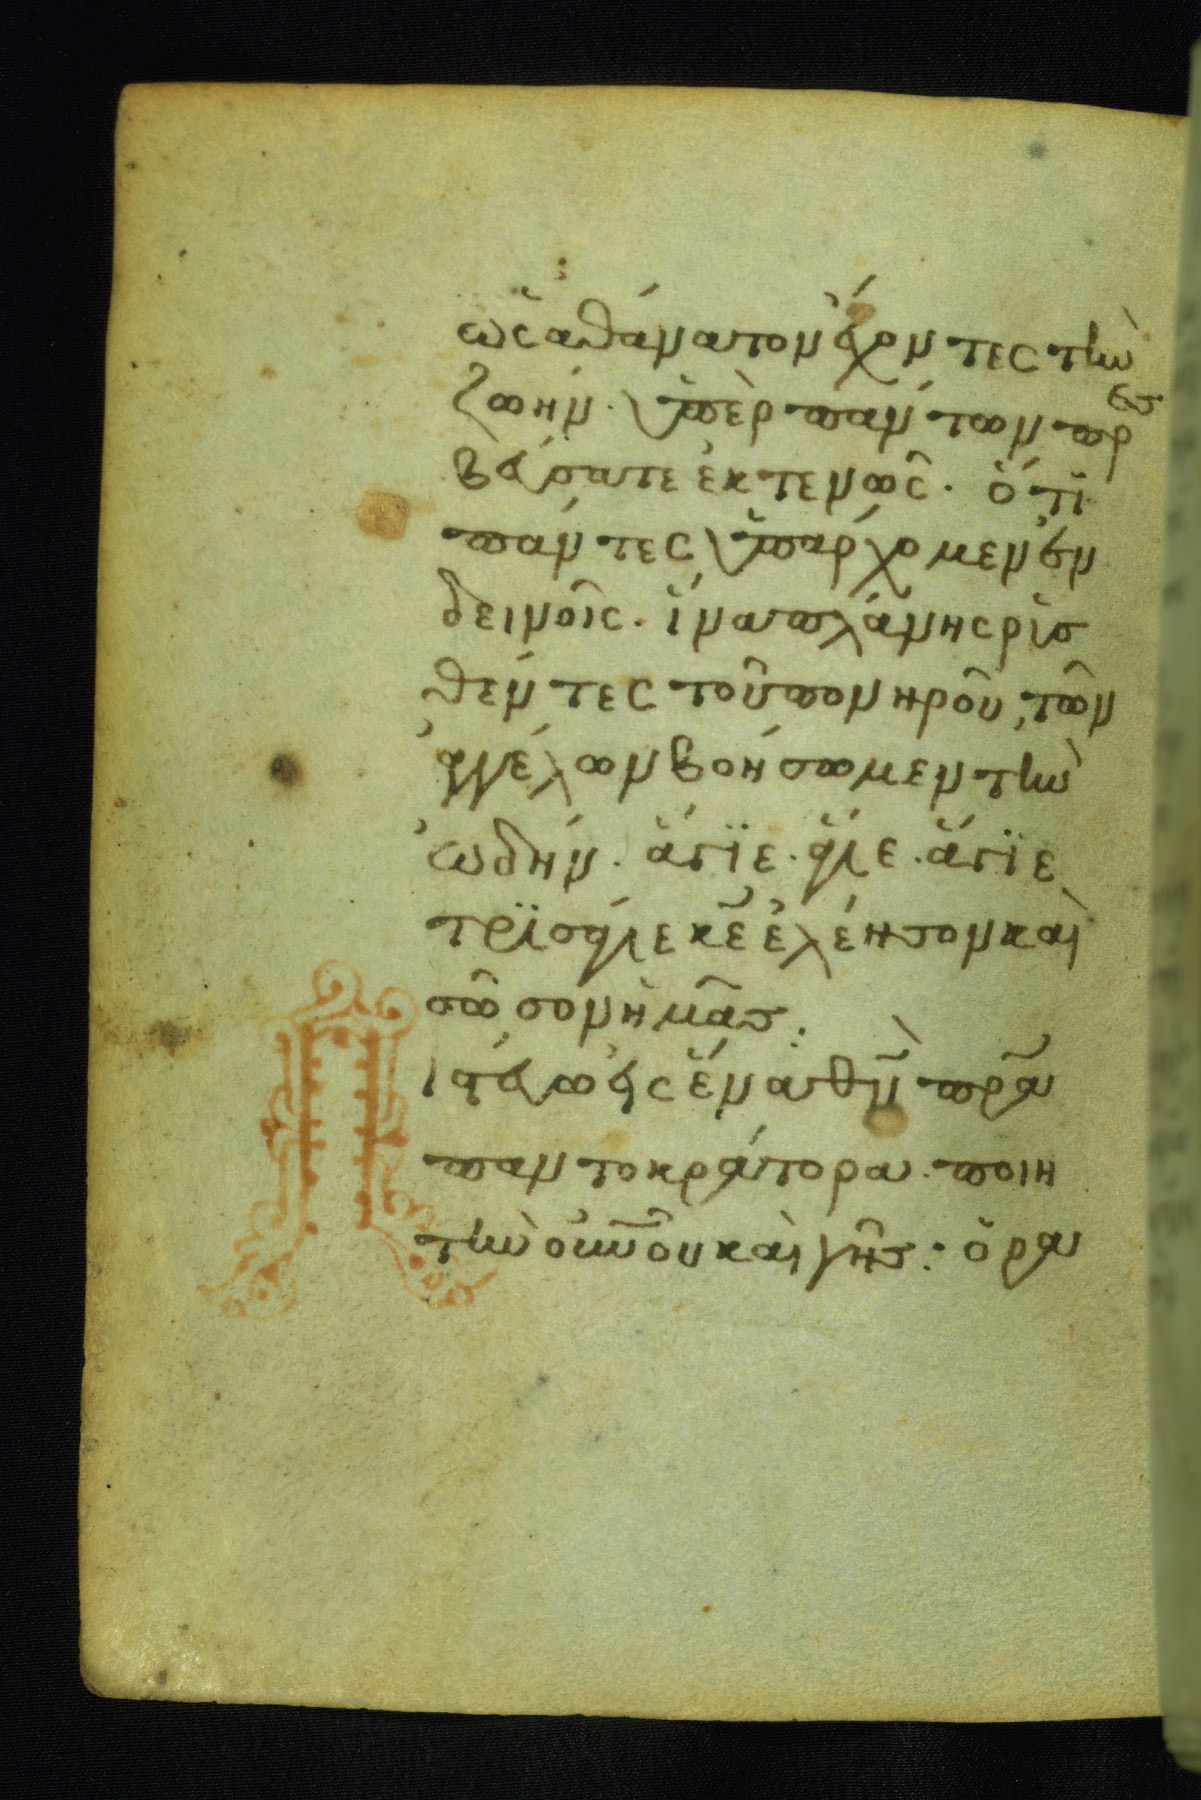 ὡς ἀθάνατον ἔχοντες τὴν
ζωήν. ὑπὲρ πάντων πρεσ
βεύσατε ἐκτενῶς. ὅτι
πάντες ὑπάρχομεν ἐν
δεινοῖς. ἵνα πλάνης ῥυσ
θέντες τοῦ πονηροῦ, τῶν
ἀγγέλων βοήσωμεν τὴν
ὠδήν. ἅγϊε. ἅγιε. ἅγϊε
τρϊσάγιε κ̅ε̅ ἐλέησον καὶ
σῶσον ἡμᾶς:
Πιστεύω εἰς ἕνα θ̅ν̅ π̅ρ̅α̅
παντοκράτορα. ποιη
τὴν ο̅υ̅ν̅οῦ καὶ γῆς: ὁρα